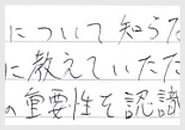 について知らな
に教えていただ
の重要性を認識